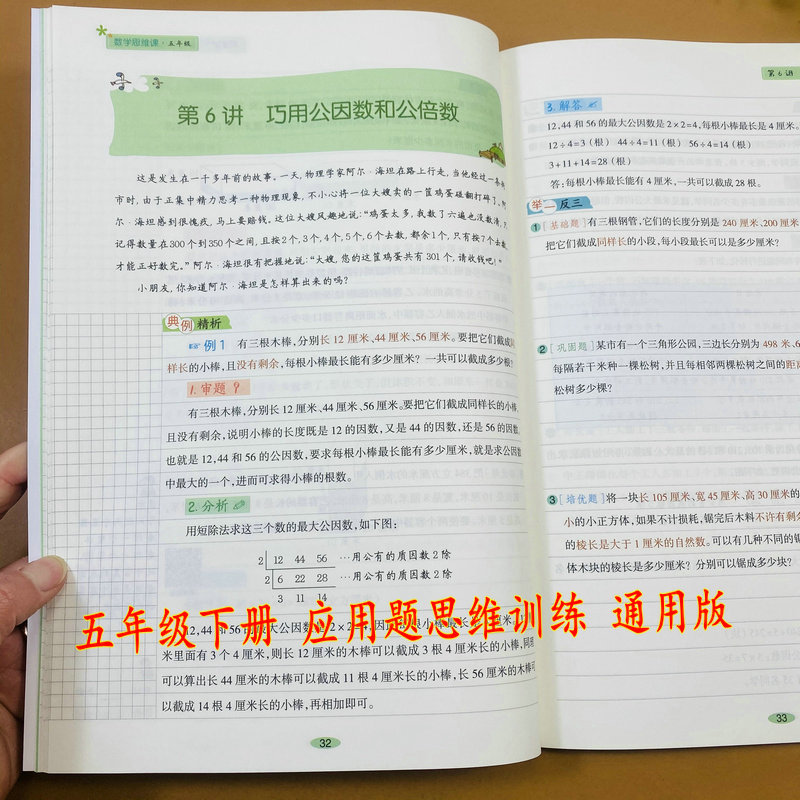 数学思维课·五年级
第6讲 巧用公因数和公倍数
这是发生在一千多年前的故事。一天,物理学家阿尔·海坦在路上行走,当他经过一条
市时,由于正集中精力思考一种物理现象,不小心将一位大嫂卖的一筐鸡蛋碰翻打碎了。阿
尔·海坦感到很愧疚,马上要赔钱。这位大嫂风趣地说:“鸡蛋太多,我数了六遍也没数清,只
记得数量在300个到350个之间,且按2个,3个,4个,5个,6个去数,都余1个,只有按7个去数
才能正好数完。”阿尔·海坦很有把握地说:“大嫂,您的这筐鸡蛋共有301个,请收钱吧!”
小朋友,你知道阿尔·海坦是怎样算出来的吗?
典例精析
例1 有三根木棒,分别长12厘米、44厘米、56厘米。要把它们截成同
样长的小棒,且没有剩余,每根小棒最长能有多少厘米?一共可以截成多少根?
1.审题
有三根木棒,分别长12厘米、44厘米、56厘米。要把它们截成同样长的小棒,
且没有剩余,说明小棒的长度既是12的因数,又是44的因数,还是56的因数,
也就是12,44和56的公因数,要求每根小棒最长能有多少厘米,就是求公因数
中最大的一个,进而可求得小棒的根数。
2.分析
用短除法求这三个数的最大公因数,如下图:
2 12 44 56 …用公有的质因数2除
2 6 22 28 …用公有的质因数2除
3 11 14
五年级下册 应用题思维训练 通用版
12,44和56的最大公因数是2×2=4,因
米里面有3个4厘米,则长12厘米的木棒可以截成3根4厘米长的小棒,同理
可以算出长44厘米的木棒可以截成11根4厘米长的小棒,长56厘米的木棒可
以截成14根4厘米长的小棒,再相加即可。
32
第6讲
3.解答
12,44和56的最大公因数是2×2=4,每根小棒最长是4厘米。
12÷4=3(根) 44÷4=11(根) 56÷4=14(根)
3+11+14=28(根)
答:每根小棒最长能有4厘米,一共可以截成28根。
举一反三
1 [基础题] 有三根钢管,它们的长度分别是240厘米、200厘米
把它们截成同样长的小段,每小段最长可以是多少厘米?
2 [巩固题] 某市有一个三角形公园,三边长分别为498米、6
每隔若干米种一棵松树,并且每相邻两棵松树之间的距
松树多少棵?
3 [培优题] 将一块长105厘米、宽45厘米、高30厘米的
小的小正方体,如果不计损耗,锯完后木料不许有剩
的棱长是大于1厘米的自然数。可以有几种不同的锯
体木块的棱长是多少厘米?分别可以锯成多少块?
33